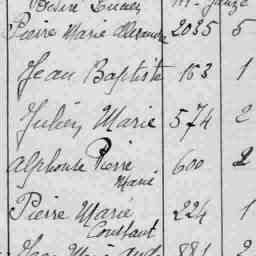 Pierre Marie Alexandre 2035 5
Jean Baptiste 153 1
Julien Marie 574 2
Alphonse Pierre 600 2
Marie
Pierre Marie 224 1
Constant
Jean Marie 881 2